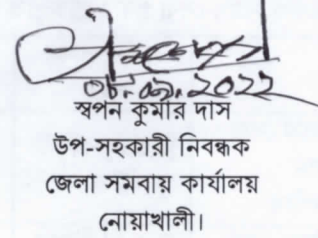 স্বপন কুমার দাস
উপ-সহকারী নিবন্ধক
জেলা সমবায় কার্যালয়
নোয়াখালী।